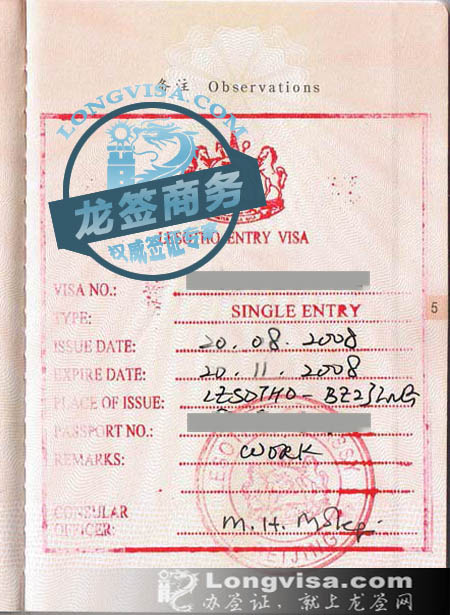 备注 Observations
LONGVISA.COM
龙签商务
权威签证专家
LESOTHO ENTRY VISA
VISA NO.:
TYPE: SINGLE ENTRY
ISSUE DATE: 20.08.2008
EXPIRE DATE: 20.11.2008
5
PLACE OF ISSUE: LESOTHO-BEIJING
PASSPORT NO.:
REMARKS: WORK
CONSULAR
OFFICER: M.H.
BEIJING
Longvisa.com
办签证，就上龙签网